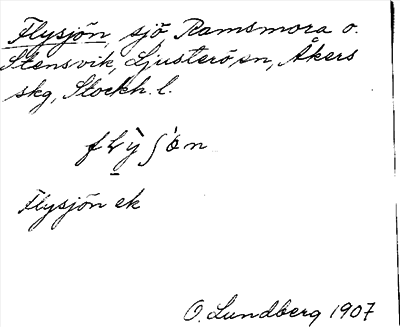 Flysjön, sjö Ramsmora o.
Stensvik, Ljusterö sn, Åkers
skg, Stockh. l.
Flysjön ek
O. Lundberg 1907